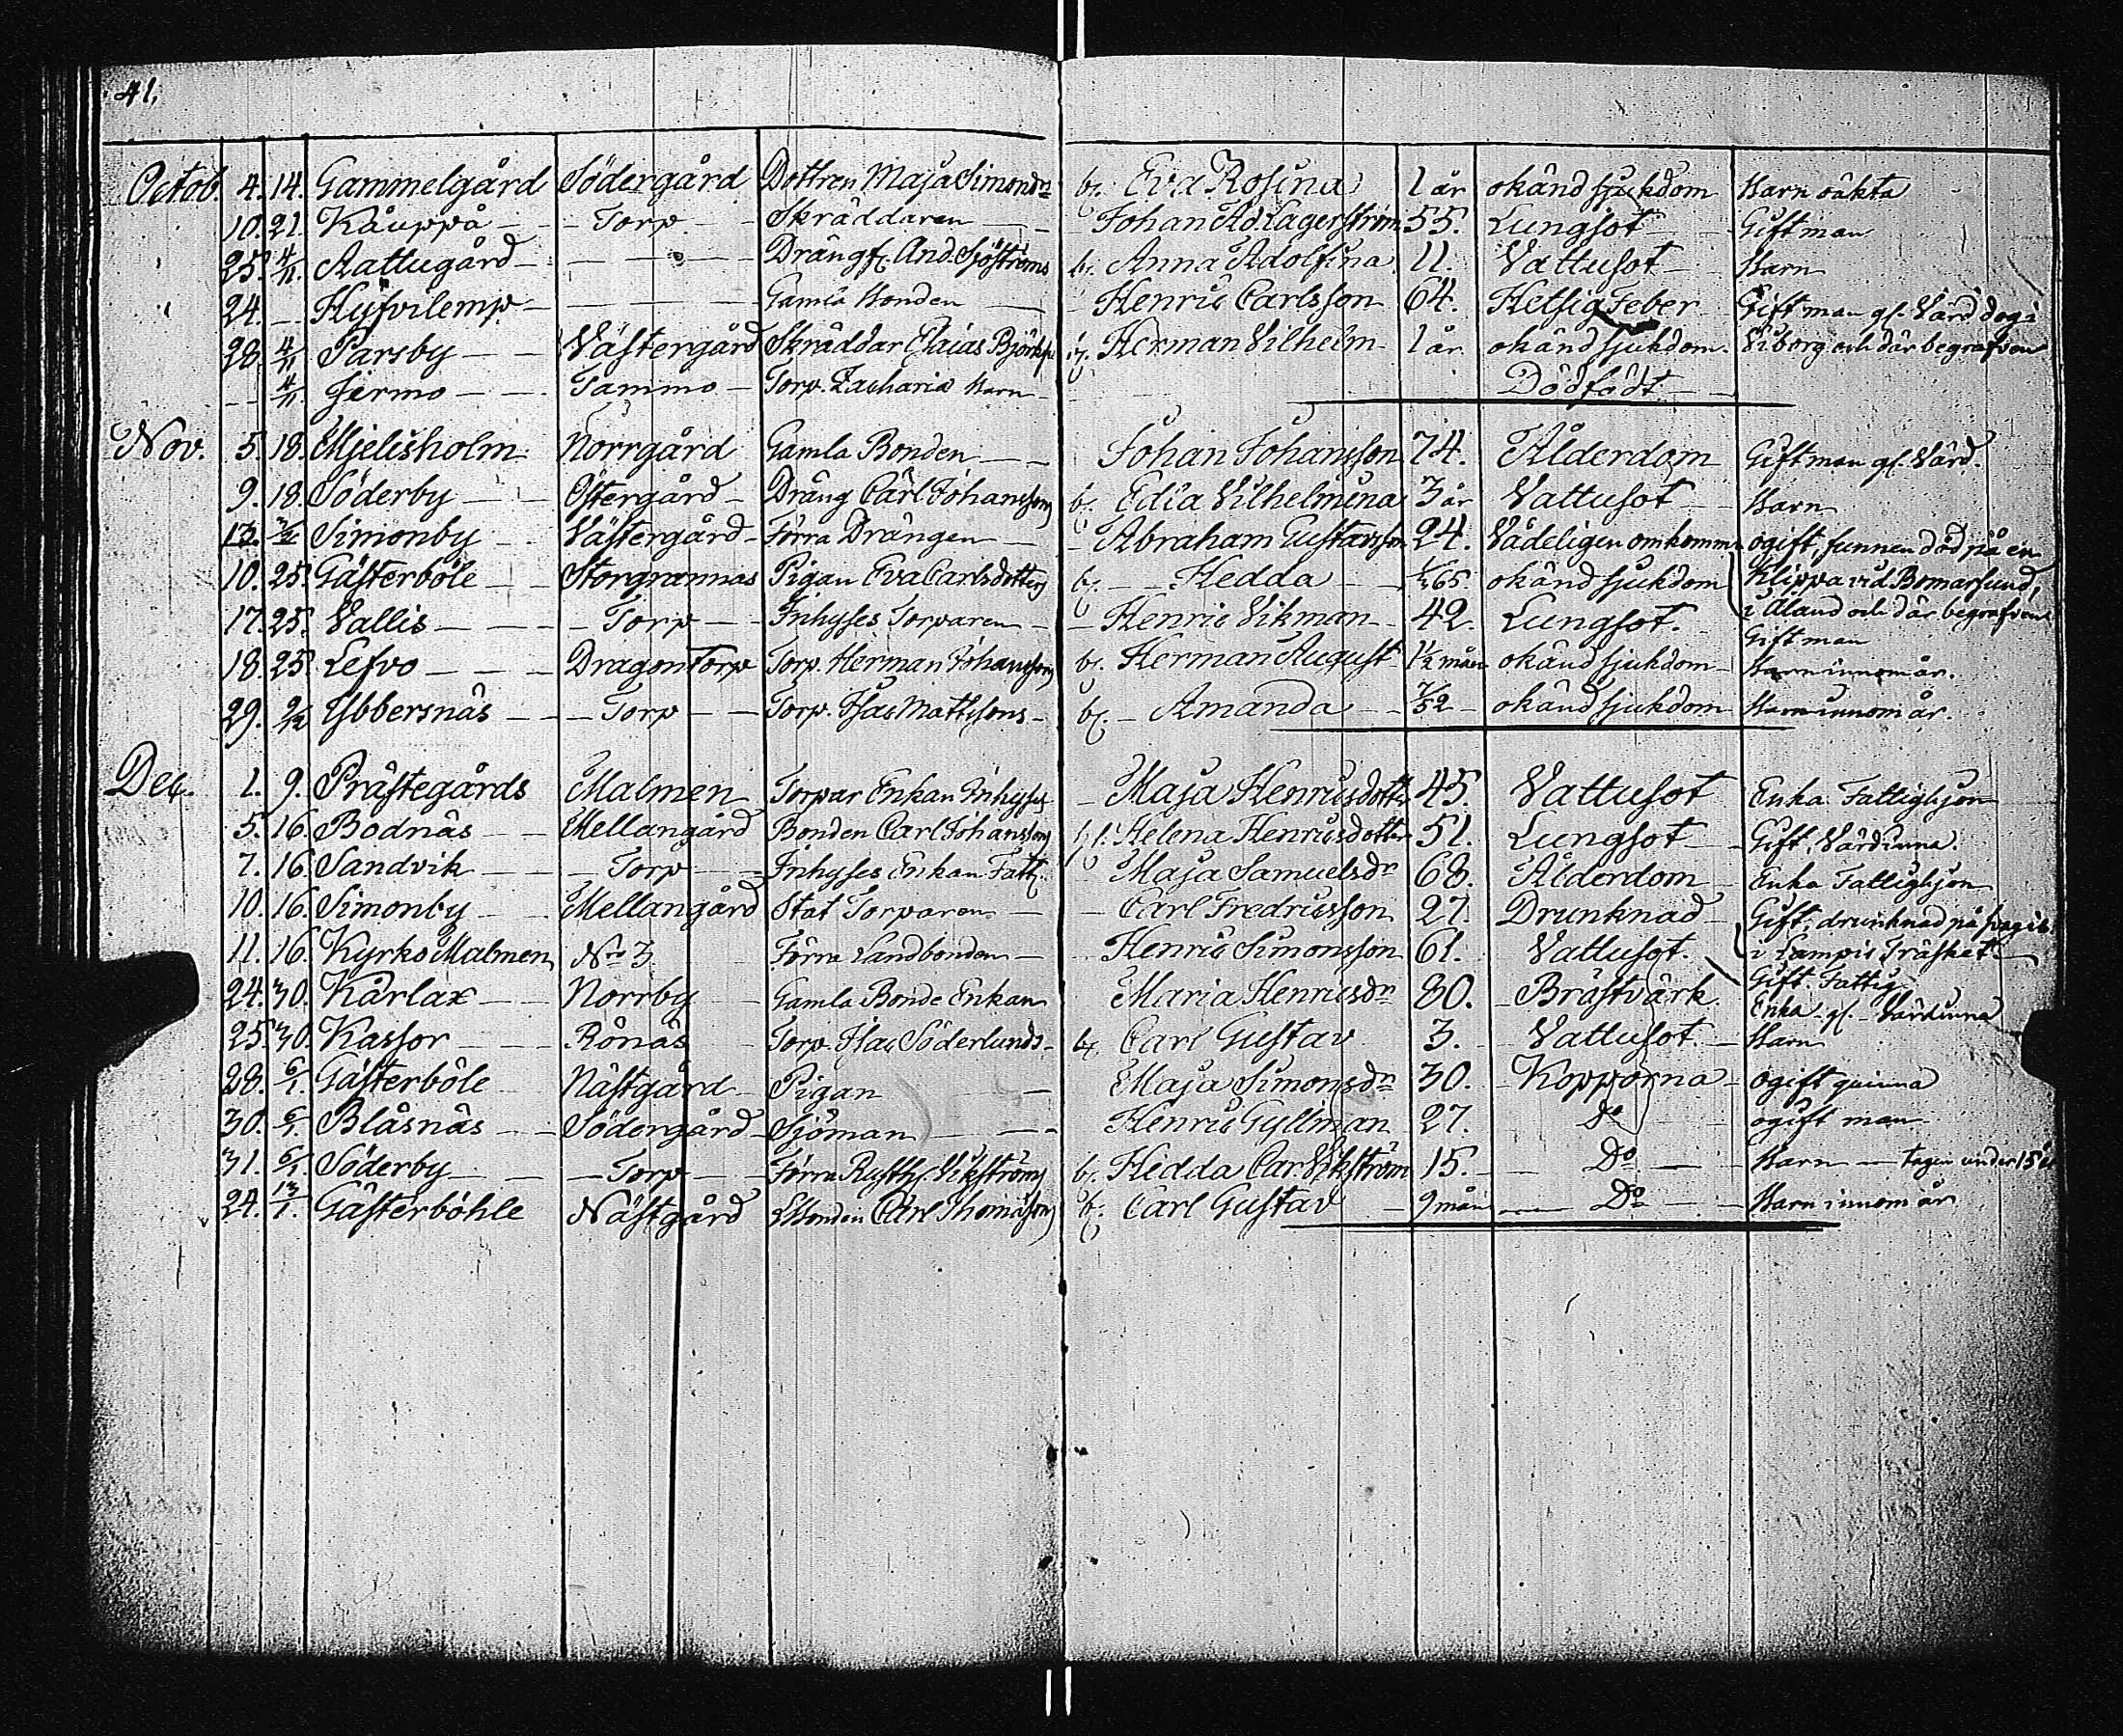 41.
Octob. 4. 14. Gammelgård Södergård Dottren Maja Simonsdr bf. Eva Rosina 1 år okänd sjukdom Barn oäkta
10. 21. Kauppå Torp Skräddaren Johan Ad. Lagerström 55. Lungsot Gift man
25. 4/11. Aattugård Dräng fl. And. Sjöströms bf. Anna Adolfina 11. Vattusot Barn
24. Hyfvilemp Gamla Bonden Henric Carlsson 64. Hetsig Feber Gift man gl. Värd dog i
28. 4/11 Parsby Västergård Skräddar Elaias Björks Herman Vilhelm 1 år. okänd sjukdom. Viborg och där begrafven
4/11 Jermo Tammo Torp. Zacharias Barn Dödfödt
Nov. 5. 18. Mjelisholm Norrgård Gamla Bonden Johan Johansson 74. Ålderdom Gift man gl. Värd.
9. 18. Söderby Östergård Dräng Carl Johanssons bf. Edla Vilhelmina 3 år Vattusot Barn
13. Simonby Västergård Förra Drängen Abraham Gustavsson 24. Vådeligen omkommen ogift, funnen död på en
10. 25. Gästerböle Storgrannas Pigan Eva Carlsdotters bf. Hedda okänd sjukdom Klippa vid Bomarsund,
17. 25. Vallis Torp Inhyses Torparen Henric Vikman 42. Lungsot. i Åland och där begrafven
Gift man
18. 25. Lefvo Dragon Torp Torp. Herman Johanssons bf. Herman August 1½ mån okänd sjukdom Barn innom år.
29. 9/12 Ybbersnäs Torp Torp. Isac Mattssons bf. Amanda 7/52 okänd sjukdom Barn innom år.
Dec. 1. 9. Prästegårds Malmen Torpar Enkan Inhyses Maja Henricsdotter 45. Vattusot Enka Fattighjon
5. 16. Bodnäs Mellangård Bonden Carl Johanssons h. Helena Henricsdotter 51. Lungsot Gift, Värdinna.
7. 16. Sandvik Torp Inhyses Enkan Fatt. Maja Samuelsdr 68. Ålderdom Enka Fattighjon
10. 16. Simonby Mellangård Stat Torparen Carl Fredricsson 27. Drunknad Gift; drunknad på svag is
11. 16. Kyrko Malmen No 3 Förra Landbonden Henric Simonsson 61. Vattusot. i Lampis Träsket.
Gift. Fattig
24. 30. Kärlax Norrby Gamla Bonde Enkan Maria Henricsdr 80. Bröstvärk Enka gl. Värdinna
25. 30. Kassor Rönäs Torp. Isac Söderlunds bf. Carl Gustav 3. Vattusot. Barn
28. 6/1. Gästerböle Nästgård Pigan Maja Simonsdr 30. Kopporna ogift quinna
30. 6/1. Blåsnäs Södergård Sjöman Henric Gyllman 27. Do ogift man
31. 6/1. Söderby Torp Förra Rusth. Vikströms bf. Hedda Car Vikström 15. Do Barn tagen under 15 år
24. 13/1. Gästerböhle Nästgård Bonden Carl Thomassons bf. Carl Gustav 9 mån Do Barn innom år